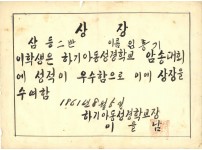 상 장
삼등 二반 이름 임홍기
이 학생은 하기아동성경학교 암송대회
에 성적이 우수함으로 이에 상장을
수여함
1961年8월5일
하기아동성경학교장
이 을 남